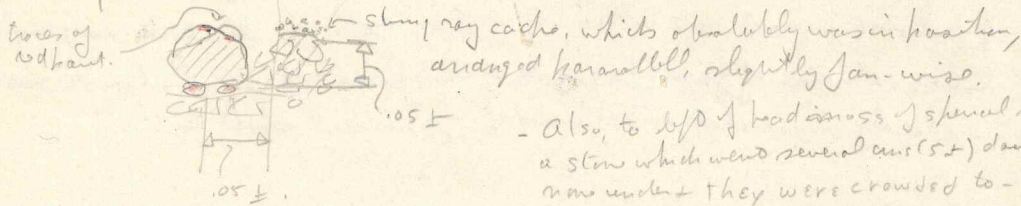 traces of
red paint.
sting ray cache, which absolutely was in position,
arranged paralell, slightly fan-wise.
.05 ±
.05 ±.
- Also, to left of head
a stone which went several cms (5±)
under + they were crowded to-